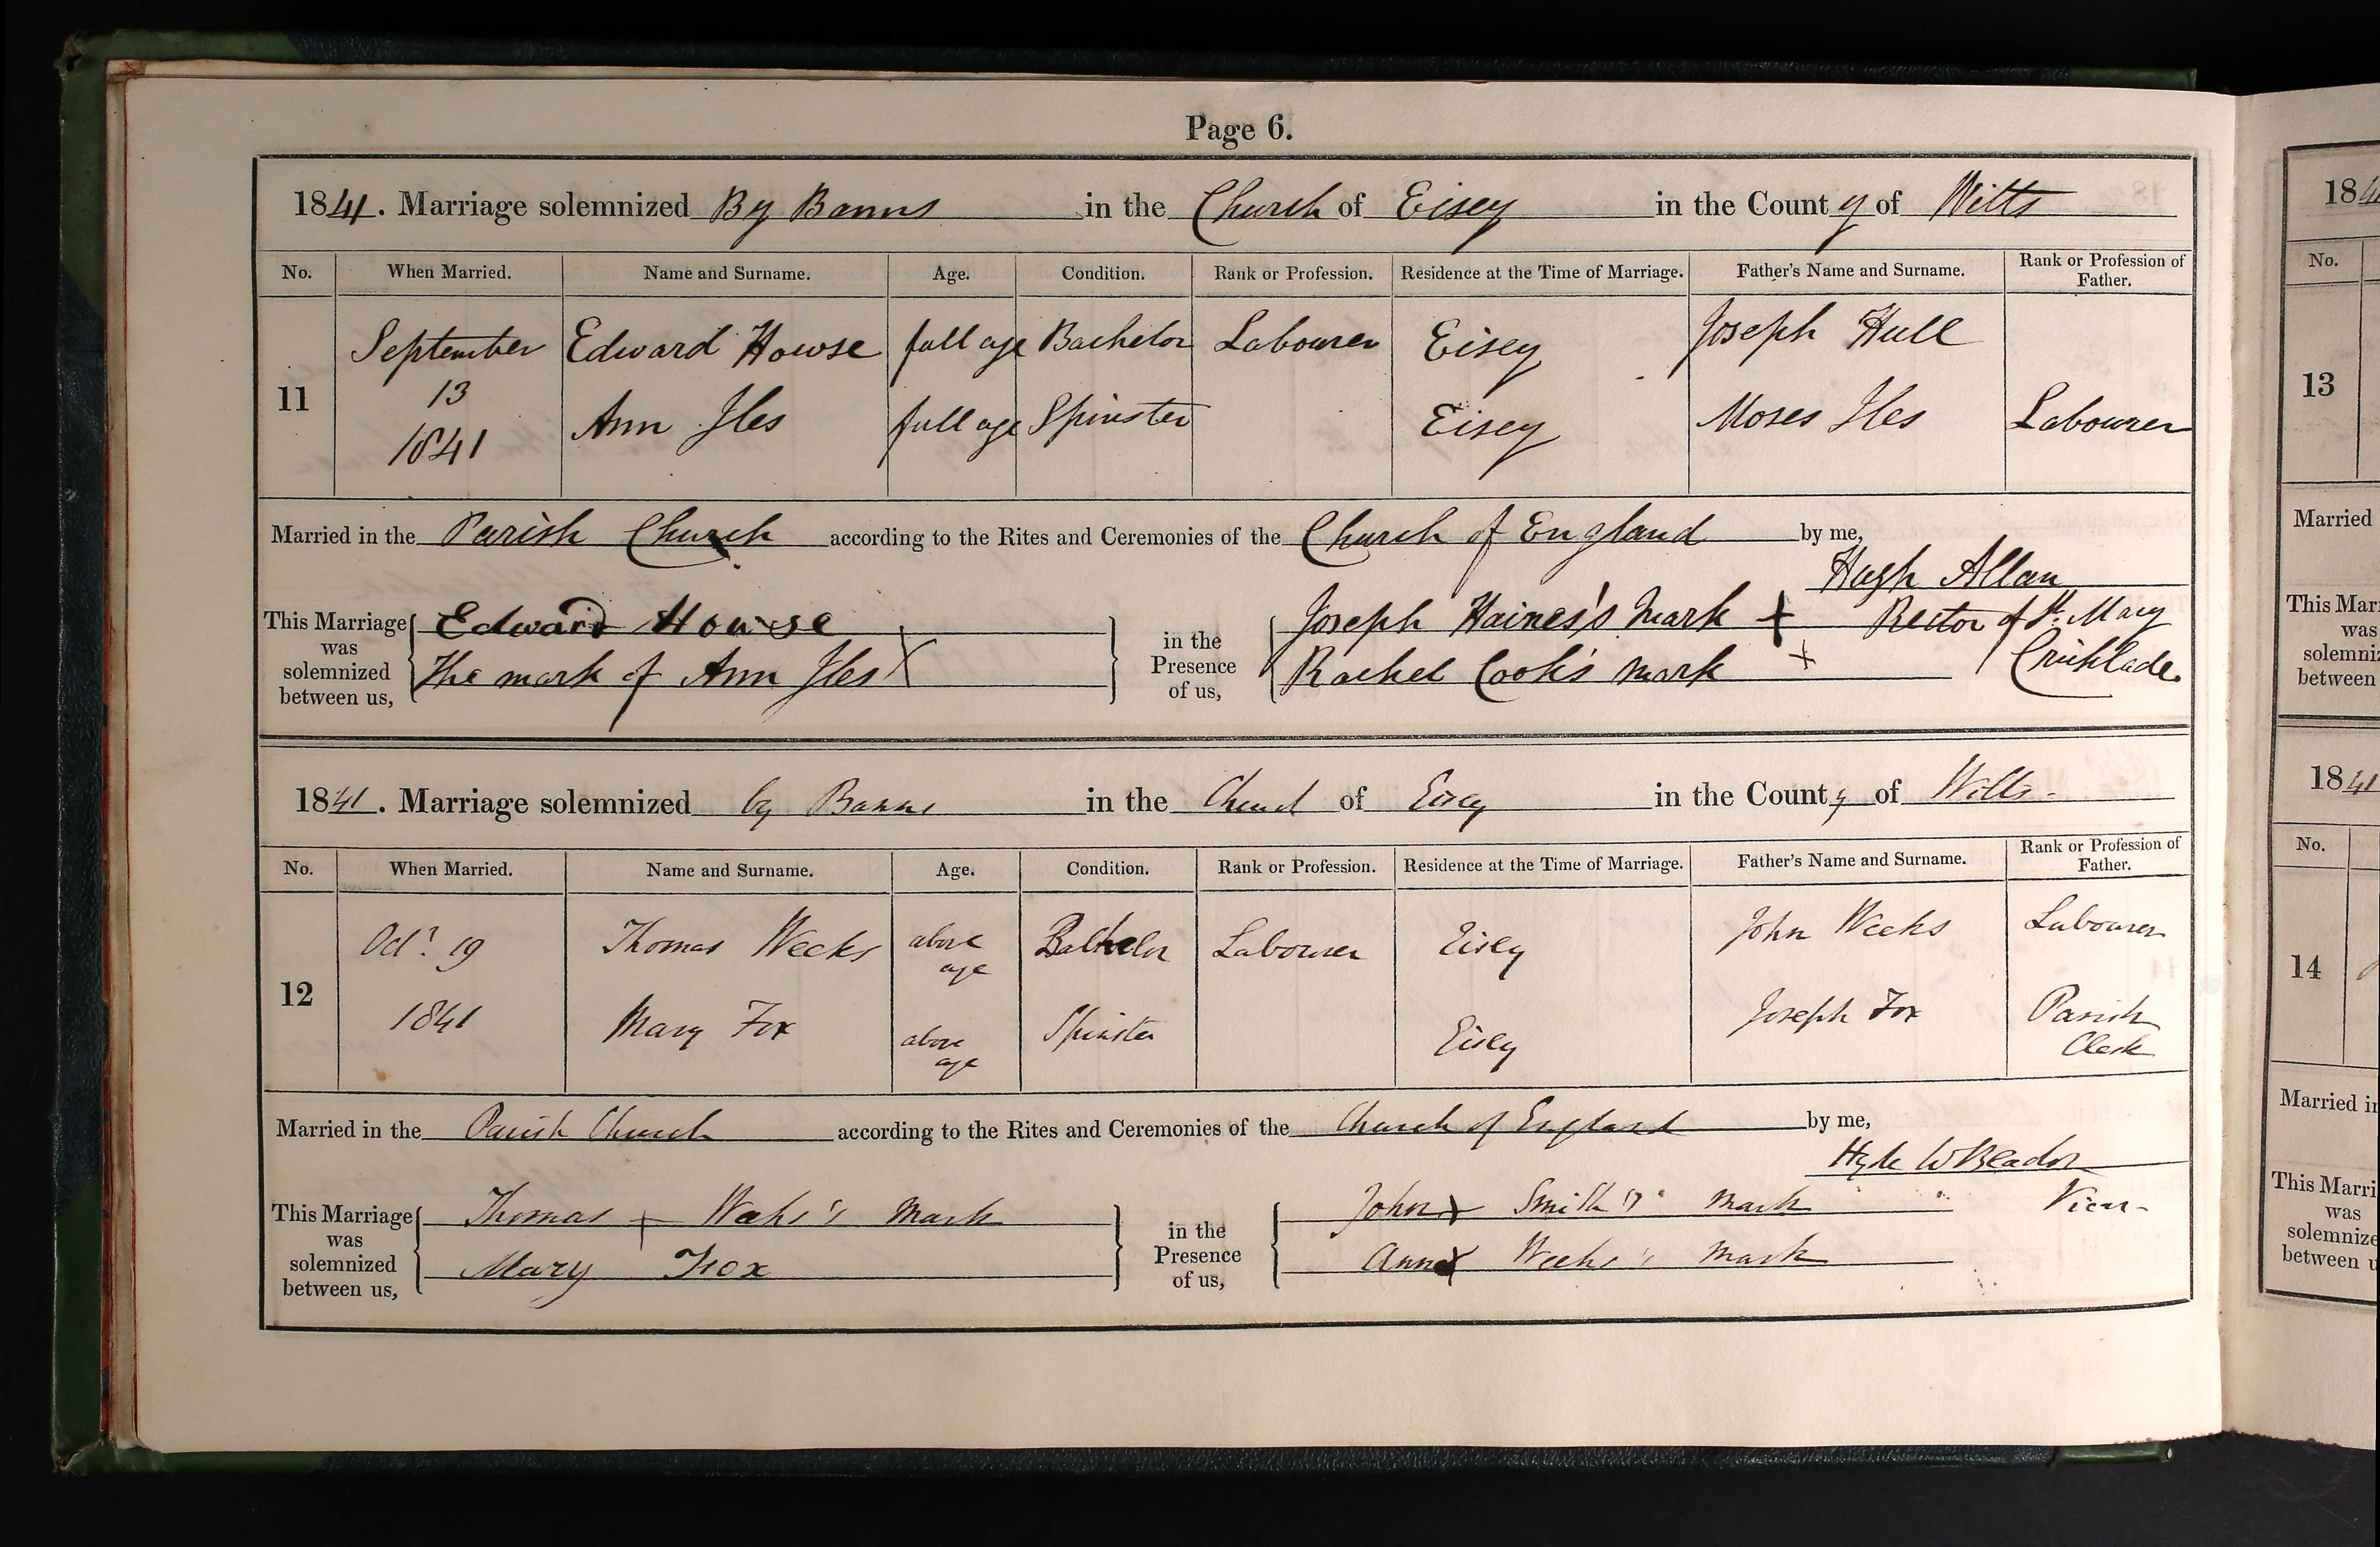 Page 6.
1841. Marriage solemnized By Banns in the Church of Eisey in the County of Wilts
No. When Married. Name and Surname. Age. Condition. Rank or Profession. Residence at the Time of Marriage. Father's Name and Surname. Rank or Profession of Father.
September Edward Howse full age Bachelor Labourer Eisey Joseph Hull
11 13
1841 Ann Iles full age Spinster Eisey Moses Iles Labourer
Married in the Parish Church according to the Rites and Ceremonies of the Church of England by me,
Hugh Allan
Rector of St. Mary
Cricklade.
This Marriage was solemnized between us,
Edward Howse
The mark of Ann Iles X
in the Presence of us,
Joseph Haines's mark +
Rachel Cook's mark +
1841. Marriage solemnized by Banns in the Church of Eisey in the County of Wilts.
No. When Married. Name and Surname. Age. Condition. Rank or Profession. Residence at the Time of Marriage. Father's Name and Surname. Rank or Profession of Father.
Octr. 19 Thomas Weeks above age Batchelor Labourer Eisey John Weeks Labourer
12
1841 Mary Fox above age Spinster Eisey Joseph Fox Parish Clerk
Married in the Parish Church according to the Rites and Ceremonies of the Church of England by me,
Hyde W Beadon
Vicar.
This Marriage was solemnized between us,
Thomas + Weeks's mark
Mary Fox
in the Presence of us,
John X Smith's mark
Ann X Weeks's mark
184
No.
13
Married
This Mar
was
solemniz
between
1841
No.
14
Married in
This Marri
was
solemnize
between u